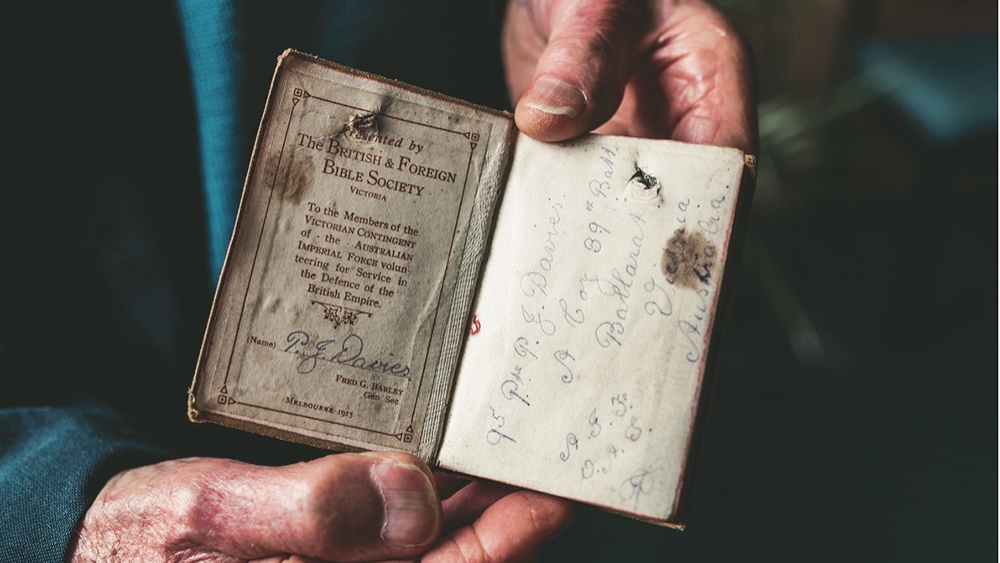 Presented by
The British & Foreign
Bible Society
Victoria
To the Members of the
Victorian Contingent
of · the · Australian
Imperial Force volun
teering for Service in
the Defence of the
British Empire.
(Name) P. J. Davies
Fred G. Barley
Gen. Sec.
Melbourne 1915
95 Pte P. J. Davies.
A Coy 39th Batt.
Ballarat
Australia.
A. I. F.